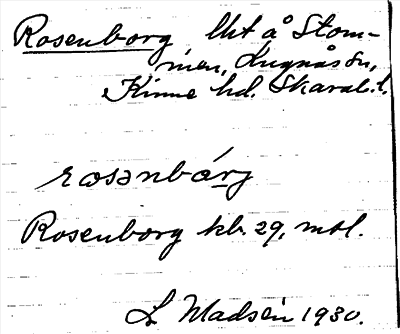 Rosenborg lht å Stom-
men, Lugnås sn,
Kinne hd. Skarab. l.
rosənbárj
Rosenborg kb. 29, mtl.
L Madsén 1930.